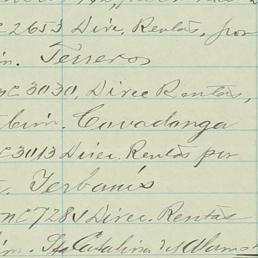 c 2653 Direc. Rentas, por
in. Terreros
nc 3030, Direc Rentas,
bin. Covadonga
c 3013 Direc. Rentas por
Terbanis
nc 7281 Direc. Rentas
in. Sta Catalina del Alamo